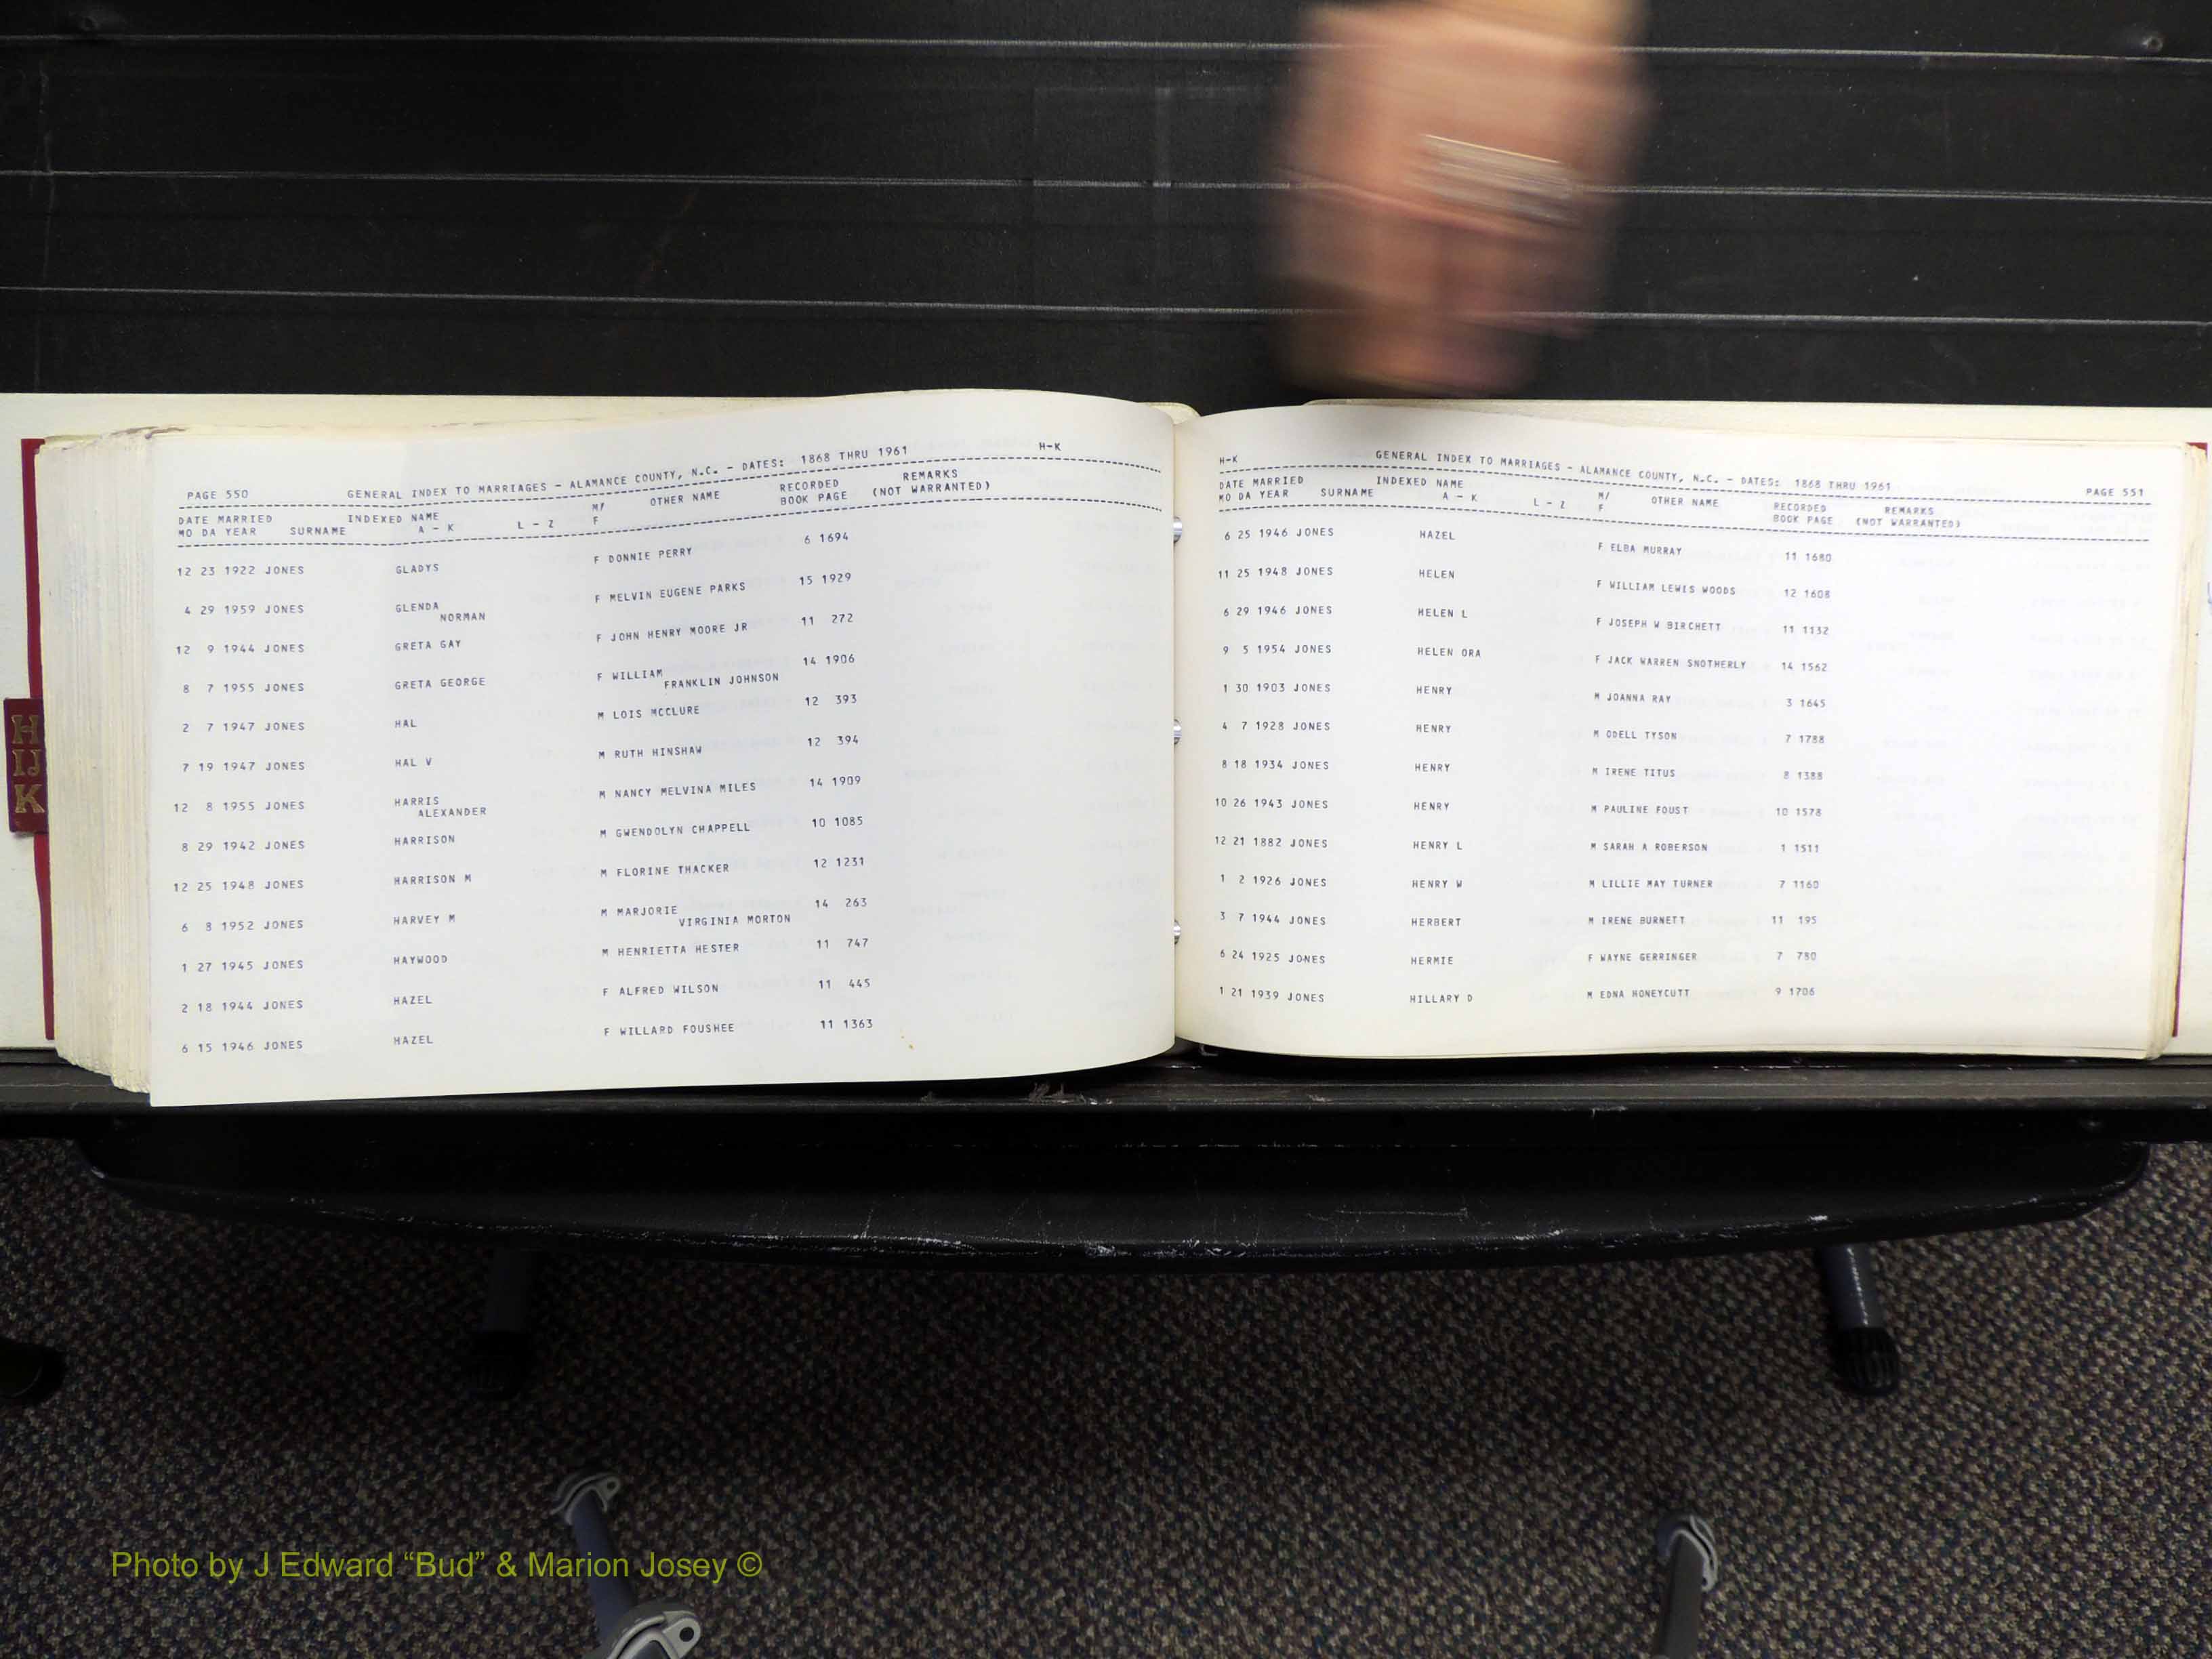 PAGE 550 GENERAL INDEX TO MARRIAGES - ALAMANCE COUNTY, N.C. - DATES: 1868 THRU 1961 H-K
DATE MARRIED INDEXED NAME M/ OTHER NAME RECORDED REMARKS
MO DA YEAR SURNAME A - K L - Z F BOOK PAGE (NOT WARRANTED)
12 23 1922 JONES GLADYS F DONNIE PERRY 6 1694
4 29 1959 JONES GLENDA F MELVIN EUGENE PARKS 15 1929
NORMAN
12 9 1944 JONES GRETA GAY F JOHN HENRY MOORE JR 11 272
8 7 1955 JONES GRETA GEORGE F WILLIAM 14 1906
FRANKLIN JOHNSON
2 7 1947 JONES HAL M LOIS MCCLURE 12 393
7 19 1947 JONES HAL V M RUTH HINSHAW 12 394
12 8 1955 JONES HARRIS M NANCY MELVINA MILES 14 1909
ALEXANDER
8 29 1942 JONES HARRISON M GWENDOLYN CHAPPELL 10 1085
12 25 1948 JONES HARRISON M M FLORINE THACKER 12 1231
6 8 1952 JONES HARVEY M M MARJORIE 14 263
VIRGINIA MORTON
1 27 1945 JONES HAYWOOD M HENRIETTA HESTER 11 747
2 18 1944 JONES HAZEL F ALFRED WILSON 11 445
6 15 1946 JONES HAZEL F WILLARD FOUSHEE 11 1363
H-K GENERAL INDEX TO MARRIAGES - ALAMANCE COUNTY, N.C. - DATES: 1868 THRU 1961 PAGE 551
DATE MARRIED INDEXED NAME M/ OTHER NAME RECORDED REMARKS
MO DA YEAR SURNAME A - K L - Z F BOOK PAGE (NOT WARRANTED)
6 25 1946 JONES HAZEL F ELBA MURRAY 11 1680
11 25 1948 JONES HELEN F WILLIAM LEWIS WOODS 12 1608
6 29 1946 JONES HELEN L F JOSEPH W BIRCHETT 11 1132
9 5 1954 JONES HELEN ORA F JACK WARREN SNOTHERLY 14 1562
1 30 1903 JONES HENRY M JOANNA RAY 3 1645
4 7 1928 JONES HENRY M ODELL TYSON 7 1788
8 18 1934 JONES HENRY M IRENE TITUS 8 1388
10 26 1943 JONES HENRY M PAULINE FOUST 10 1578
12 21 1882 JONES HENRY L M SARAH A ROBERSON 1 1511
1 2 1926 JONES HENRY W M LILLIE MAY TURNER 7 1160
3 7 1944 JONES HERBERT M IRENE BURNETT 11 195
6 24 1925 JONES HERMIE F WAYNE GERRINGER 7 780
1 21 1939 JONES HILLARY D M EDNA HONEYCUTT 9 1706
H
IJ
K
Photo by J Edward “Bud” & Marion Josey ©